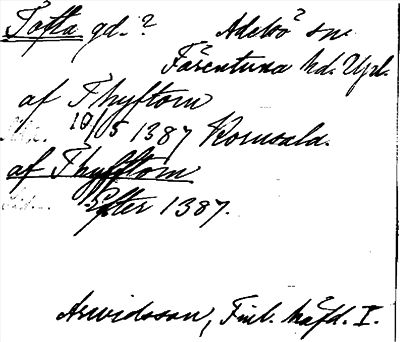 Tofta gd. ? Adelsö sn.
Färentuna hd. Upl.
af Thyftom
10/5 1387 Korusala.
af Thyfftom
Efter 1387.
Arwidsson, Finl. häfd. I.